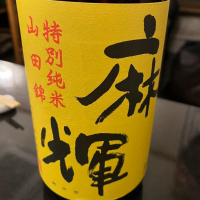 特別純米
山田錦
麻輝